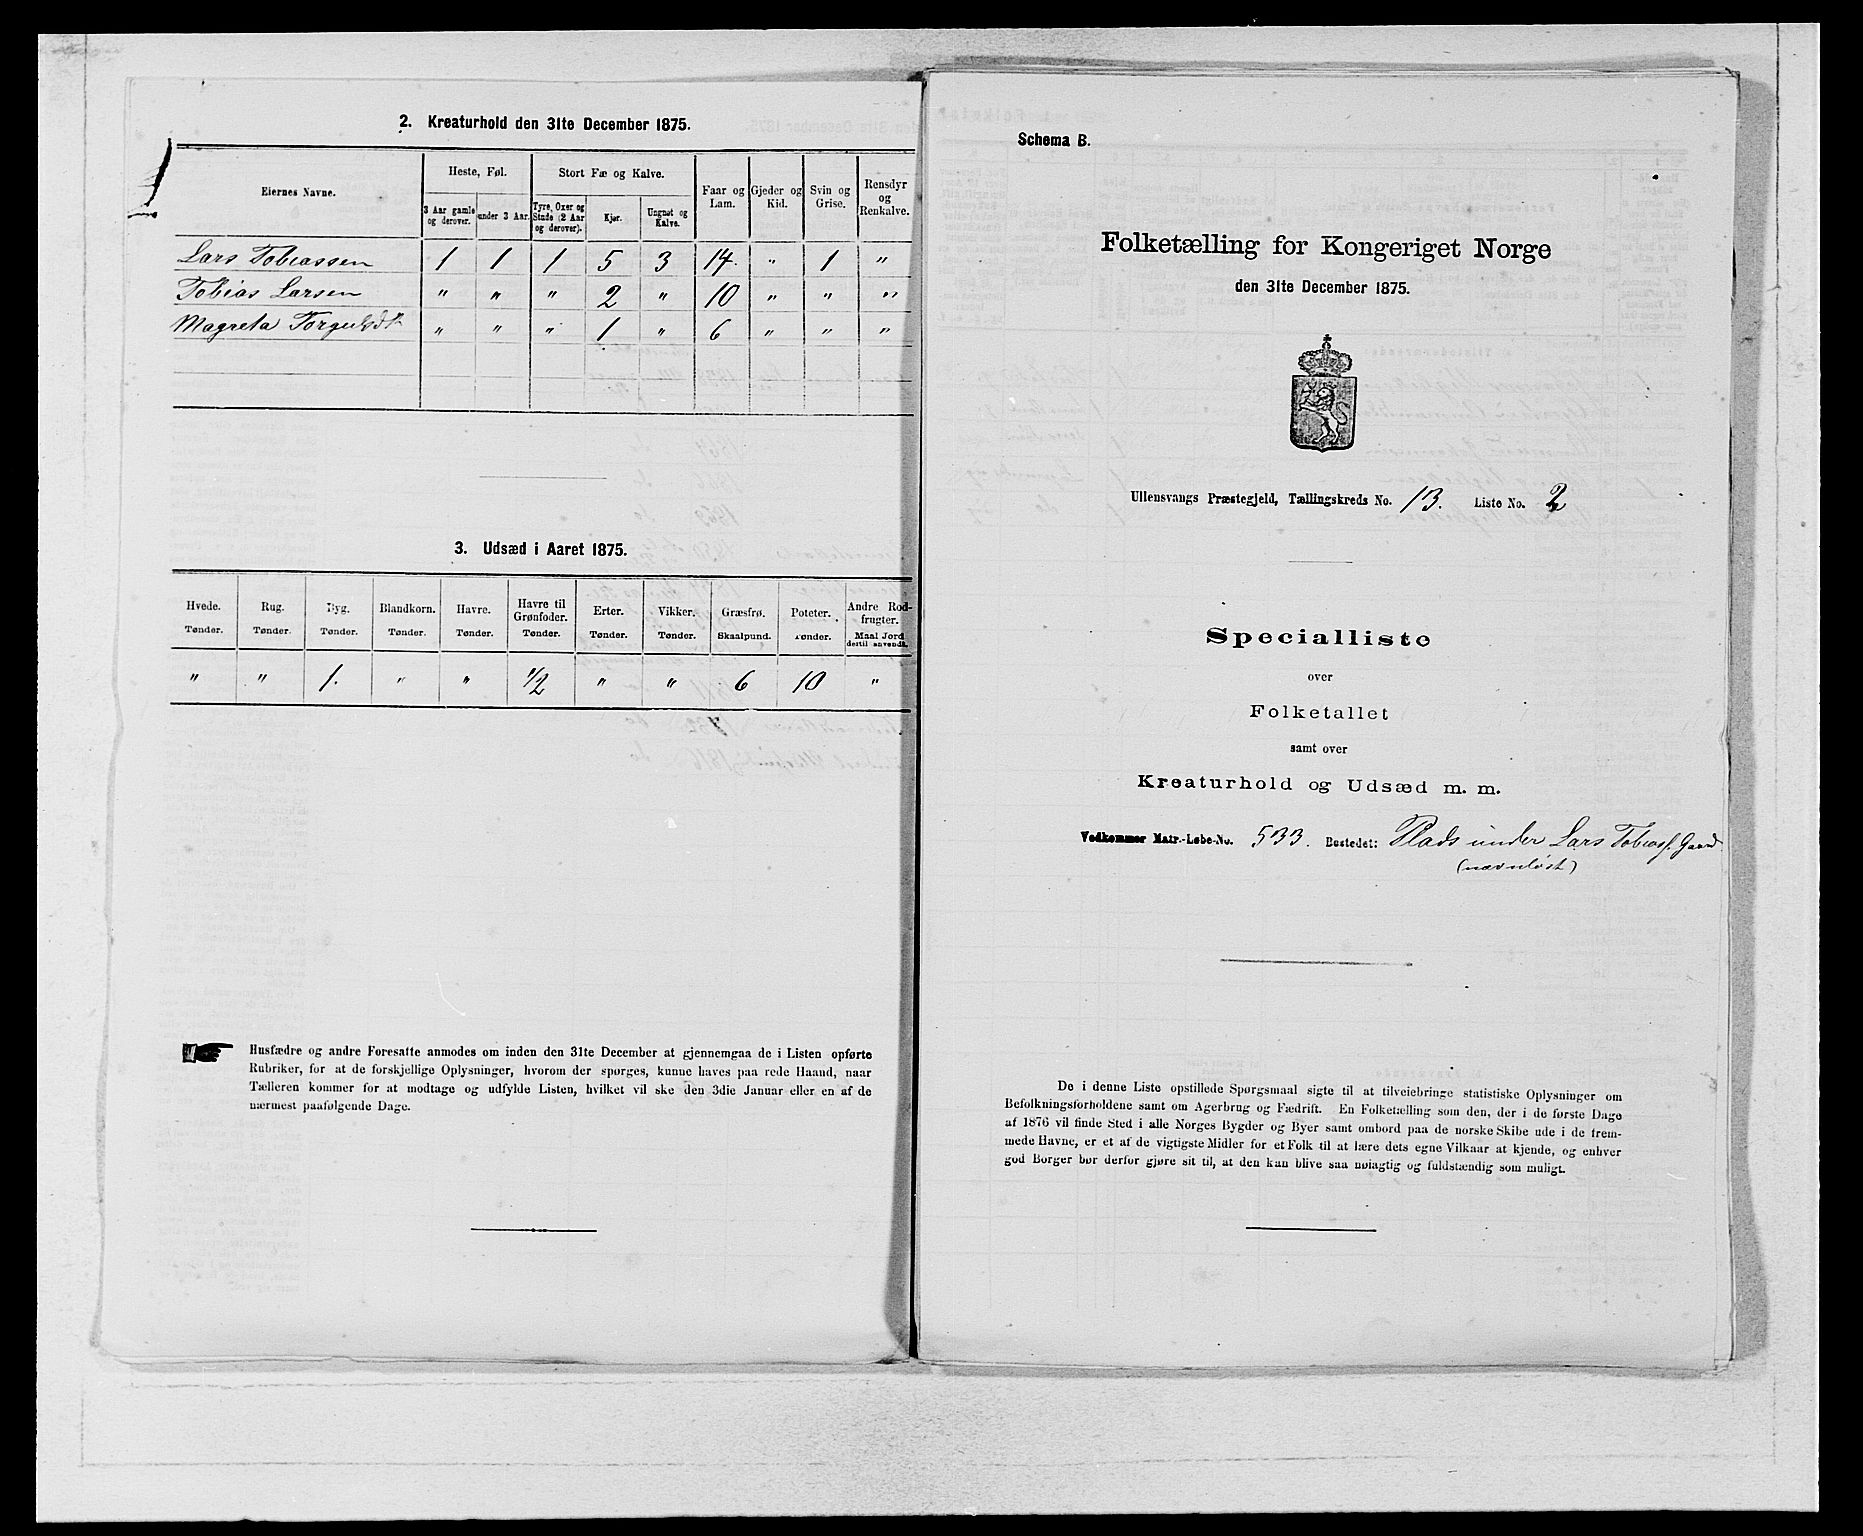 2. Kreaturhold den 31te December 1875.
Eiernes Navne.
Heste, Føl.
Stort Fæ og Kalve.
Faar og Lam.
Gjeder og Kid.
Svin og Grise.
Rensdyr og Renkalve.
3 Aar gamle og derover.
under 3 Aar.
Tyre, Oxer og Stude (2 Aar og derover).
Kjør.
Ungnøt og Kalve.
Lars Tobiassen 1 1 1 5 3 14 " 1 "
Tobias Larsen " " " 2 " 10 " " "
Magreta " " " 1 " 6 " " "
3. Udsæd i Aaret 1875.
Hvede. Tønder.
Rug. Tønder.
Byg. Tønder.
Blandkorn. Tønder.
Havre. Tønder.
Havre til Grønfoder. Tønder.
Erter. Tønder.
Vikker. Tønder.
Græsfrø. Skaalpund.
Poteter. Tønder.
Andre Rodfrugter. Maal Jord dertil anvendt.
" " 1. " " 1/2 " " 6 10 "
Husfædre og andre Foresatte anmodes om inden den 31te December at gjennemgaa de i Listen opførte
Rubriker, for at de forskjellige Oplysninger, hvorom der spørges, kunne haves paa rede Haand, naar
Tælleren kommer for at modtage og udfylde Listen, hvilket vil ske den 3die Januar eller en af de
nærmest paafølgende Dage.
Schema B.
Folketælling for Kongeriget Norge
den 31te December 1875.
Ullensvangs Præstegjeld, Tællingskreds No. 13. Liste No. 2
Specialliste
over
Folketallet
samt over
Kreaturhold og Udsæd m. m.
Vedkommer Matr.-Løbe-No. 533. Bostedet: Plads under Lars Tobiass. Gaard
(navnløst)
De i denne Liste opstillede Spørgsmaal sigte til at tilveiebringe statistiske Oplysninger om
Befolkningsforholdene samt om Agerbrug og Fædrift. En Folketælling som den, der i de første Dage
af 1876 vil finde Sted i alle Norges Bygder og Byer samt ombord paa de norske Skibe ude i de frem-
mede Havne, er et af de vigtigste Midler for et Folk til at lære dets egne Vilkaar at kjende, og enhver
god Borger bør derfor gjøre sit til, at den kan blive saa nøiagtig og fuldstændig som muligt.